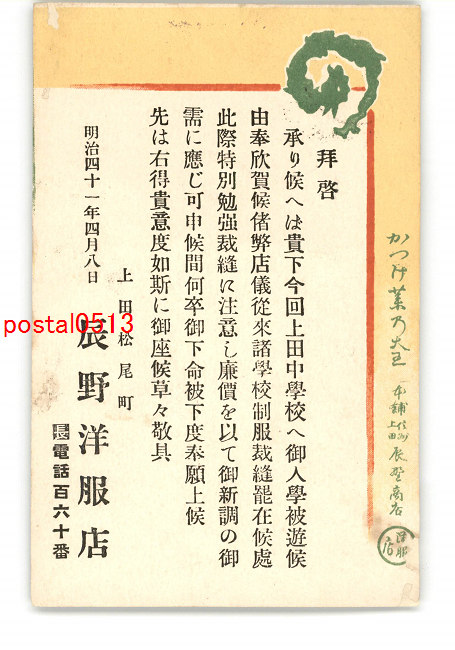 拝啓
承り候へは貴下今回上田中學校へ御入學被遊候
由奉欣賀候偖弊店儀從來諸學校制服裁縫罷在候處
此際特別勉强裁縫に注意し廉價を以て御新調の御
需に應じ可申候間何卒御下命被下度奉願上候
先は右得貴意度如斯に御座候草々敬具
明治四十一年四月八日
上田松尾町
辰野洋服店
電話百六十番
かつけ薬乃大王
本舗 信州上田 辰野商店
洋服店
postal0513